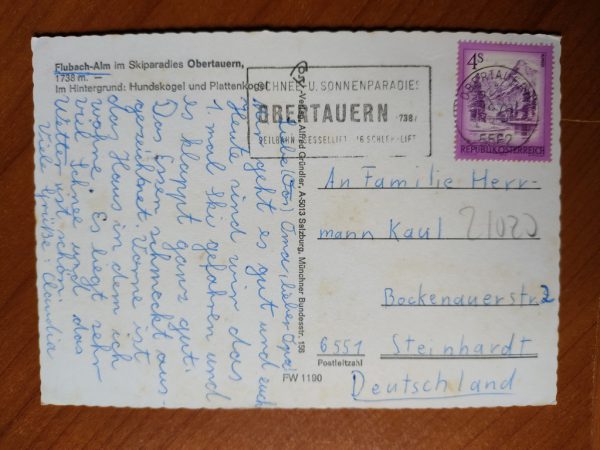 Flubach-Alm im Skiparadies Obertauern,
1738 m. –
Im Hintergrund: Hundskogel und Plattenkogel
SCHNEE U. SONNENPARADIES
OBERTAUERN 1738 M
SEILBAHN SESSELLIFT 16 SCHLEPPLIFT
OBERTAUERN
5562
4 S
REPUBLIK ÖSTERREICH
Liebe Oma, lieber Opa!
Mir geht es gut und euch
Heute sind wir das
1. mal Ski gefahren und
es klappt ganz gut.
Das Essen schmeckt aus-
gezeichnet. Vorne ist
das Haus in dem ich
wohne. Es liegt sehr
viel Schnee und das
Wetter ist schön.
Viele Grüße: Claudia
-Verlag Alfred Gründler, A-5013 Salzburg, Münchner Bundesstr. 156
An Familie Herr-
mann Kaul
Bockenauerstr. 2
6551 Steinhardt
Postleitzahl
Deutschland
FW 1190